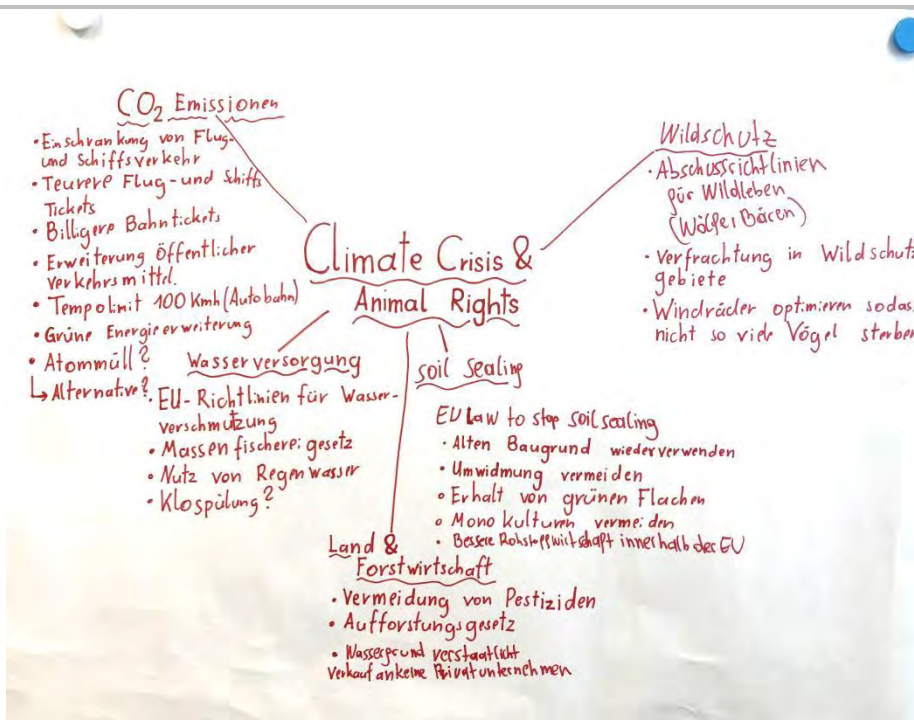 CO₂ Emissionen
• Einschränkung von Flug-
und Schiffsverkehr
• Teurere Flug- und Schiffs
Tickets
• Billigere Bahntickets
• Erweiterung öffentlicher
Verkehrsmittel.
• Tempolimit 100 Kmh (Autobahn)
• Grüne Energieerweiterung
• Atommüll?
↳ Alternative?
Climate Crisis &
Animal Rights
Wildschutz
• Abschussrichtlinien
für Wildleben
(Wölfe Bären)
• Verfrachtung in Wildschutz
gebiete
• Windräder optimieren sodas
nicht so viele Vögel sterben
Wasserversorgung
• EU-Richtlinien für Wasser-
verschmutzung
• Massenfischereigesetz
• Nutz von Regenwasser
• Klospülung?
soil sealing
EU Law to stop soil sealing
• Alten Baugrund wiederverwenden
• Umwidmung vermeiden
• Erhalt von grünen Flachen
• Mono kulturen vermeiden
• Bessere Rohstoffwirtschaft innerhalb der EU
Land &
Forstwirtschaft
• Vermeidung von Pestiziden
• Aufforstungsgesetz
• Wassergrund verstaatlicht
Verkauf an keine Privatunternehmen